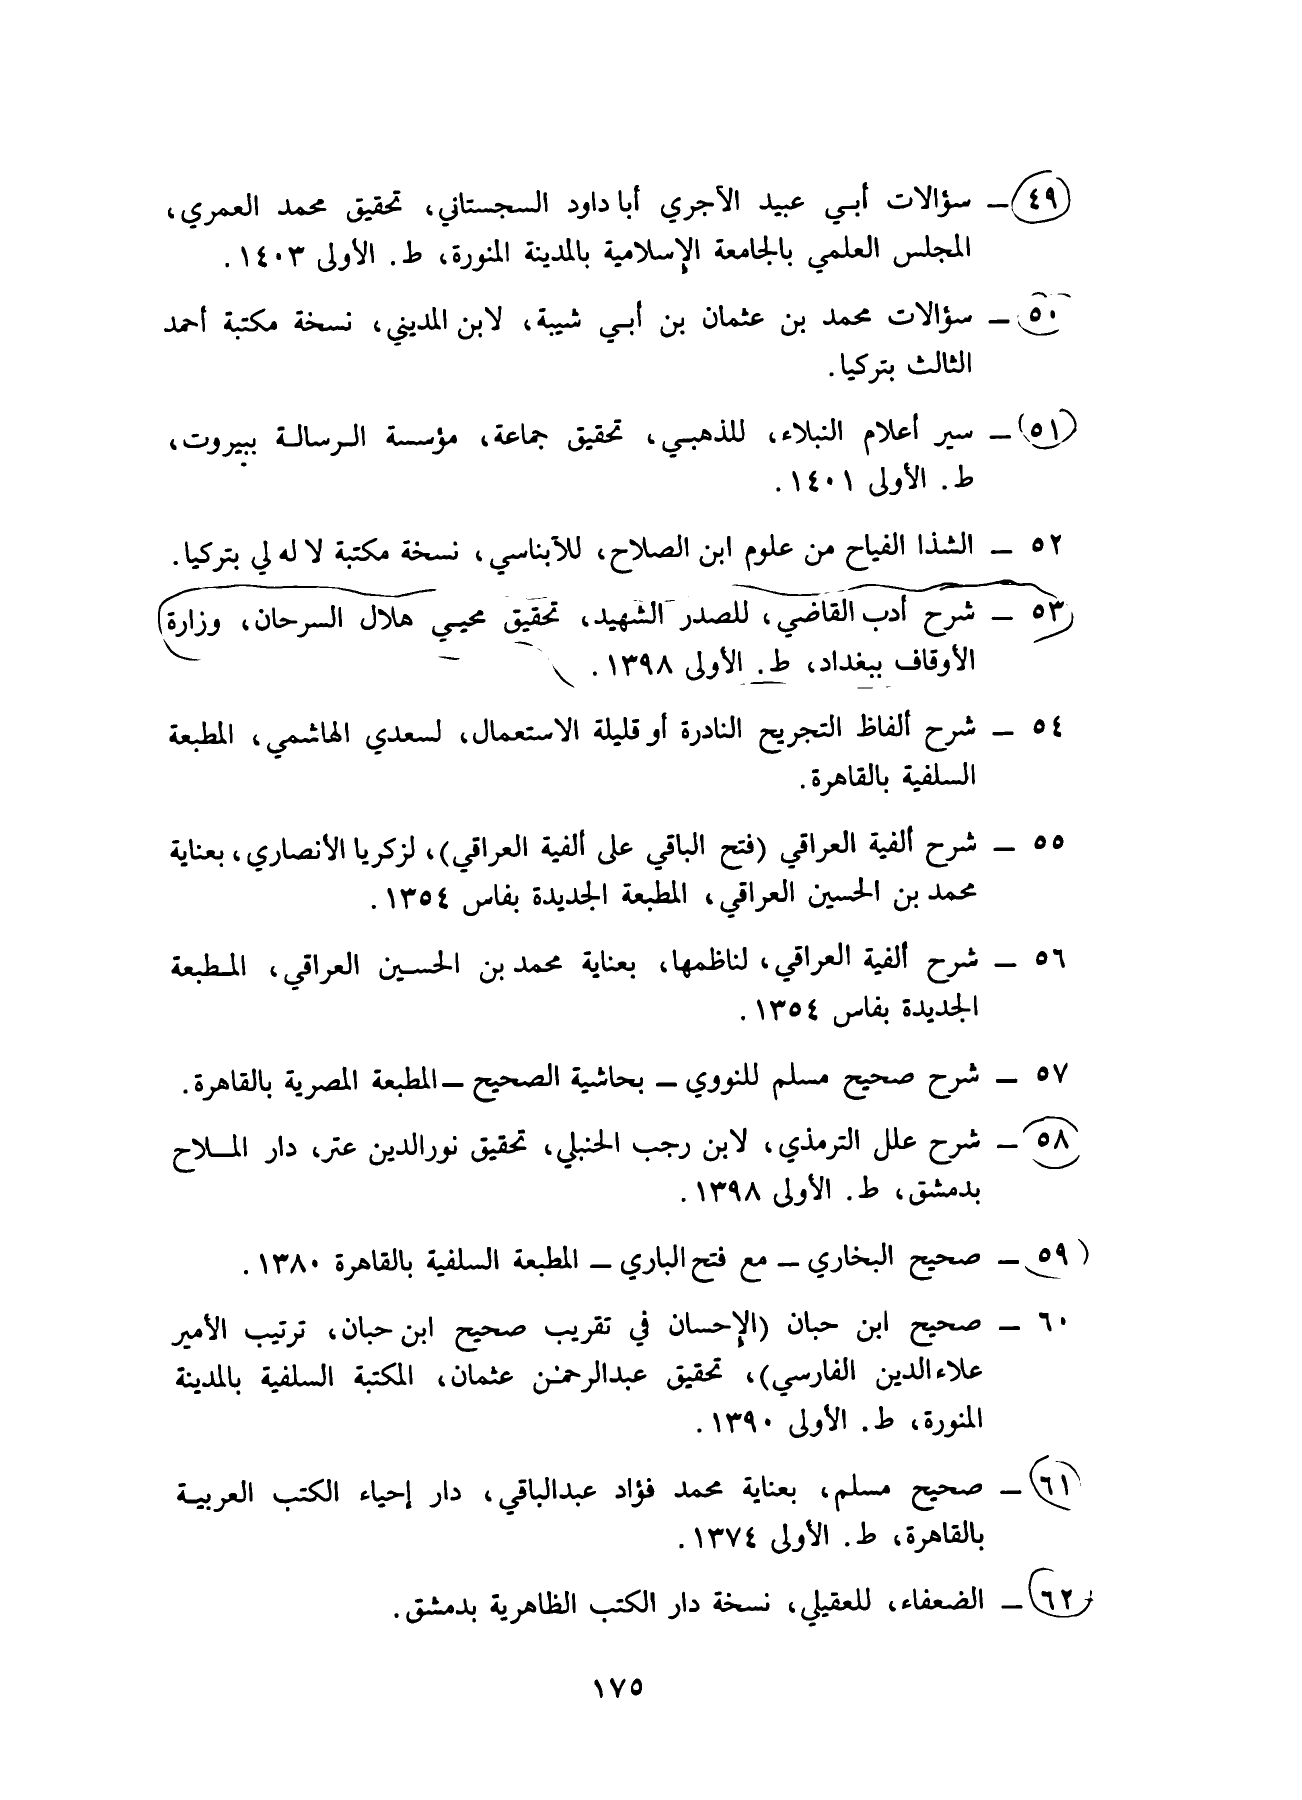 ٤٩ ــ سؤالات أبي عبيد الآجري أبا داود السجستاني، تحقيق محمد العمري،
المجلس العلمي بالجامعة الإسلامية بالمدينة المنورة، ط. الأولى ١٤٠٣.
٥٠ ــ سؤالات محمد بن عثمان بن أبي شيبة، لابن المديني، نسخة مكتبة أحمد
الثالث بتركيا.
٥١ ــ سير أعلام النبلاء، للذهبي، تحقيق جماعة، مؤسسة الرسالة ببيروت،
ط. الأولى ١٤٠١.
٥٢ ــ الشذا الفياح من علوم ابن الصلاح، للأبناسي، نسخة مكتبة لا له لي بتركيا.
٥٣ ــ شرح أدب القاضي، للصدر الشهيد، تحقيق محيي هلال السرحان، وزارة
الأوقاف ببغداد، ط. الأولى ١٣٩٨.
٥٤ ــ شرح ألفاظ التجريح النادرة أو قليلة الاستعمال، لسعدي الهاشمي، المطبعة
السلفية بالقاهرة.
٥٥ ــ شرح ألفية العراقي (فتح الباقي على ألفية العراقي)، لزكريا الأنصاري، بعناية
محمد بن الحسين العراقي، المطبعة الجديدة بفاس ١٣٥٤.
٥٦ ــ شرح ألفية العراقي، لناظمها، بعناية محمد بن الحسين العراقي، المطبعة
الجديدة بفاس ١٣٥٤.
٥٧ ــ شرح صحيح مسلم للنووي ــ بحاشية الصحيح ــ المطبعة المصرية بالقاهرة.
٥٨ ــ شرح علل الترمذي، لابن رجب الحنبلي، تحقيق نورالدين عتر، دار الملاح
بدمشق، ط. الأولى ١٣٩٨.
٥٩ ــ صحيح البخاري ــ مع فتح الباري ــ المطبعة السلفية بالقاهرة ١٣٨٠.
٦٠ ــ صحيح ابن حبان (الإحسان في تقريب صحيح ابن حبان، ترتيب الأمير
علاءالدين الفارسي)، تحقيق عبدالرحمٰن عثمان، المكتبة السلفية بالمدينة
المنورة، ط. الأولى ١٣٩٠.
٦١ ــ صحيح مسلم، بعناية محمد فؤاد عبدالباقي، دار إحياء الكتب العربية
بالقاهرة، ط. الأولى ١٣٧٤.
٦٢ ــ الضعفاء، للعقيلي، نسخة دار الكتب الظاهرية بدمشق.
١٧٥